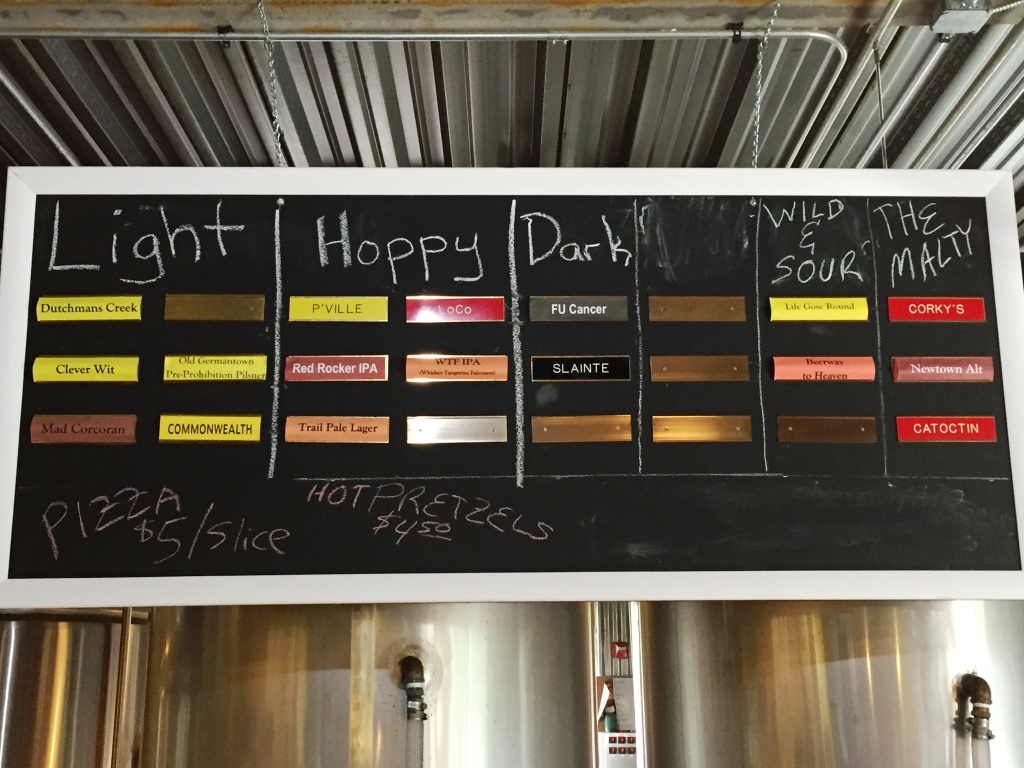 Light
Hoppy
Dark
WILD
&
SOUR
THE
MALTY
Dutchmans Creek
Clever Wit
Old Germantown
Pre-Prohibition Pilsner
Mad Corcoran
COMMONWEALTH
P'VILLE
LoCo
Red Rocker IPA
WTF IPA
(Whiskey Tangerine Falconers)
Trail Pale Lager
FU Cancer
SLAINTE
Life Gose Round
Beerway
to Heaven
CORKY'S
Newtown Alt
CATOCTIN
PIZZA
$5/Slice
HOT PRETZELS
$4.50